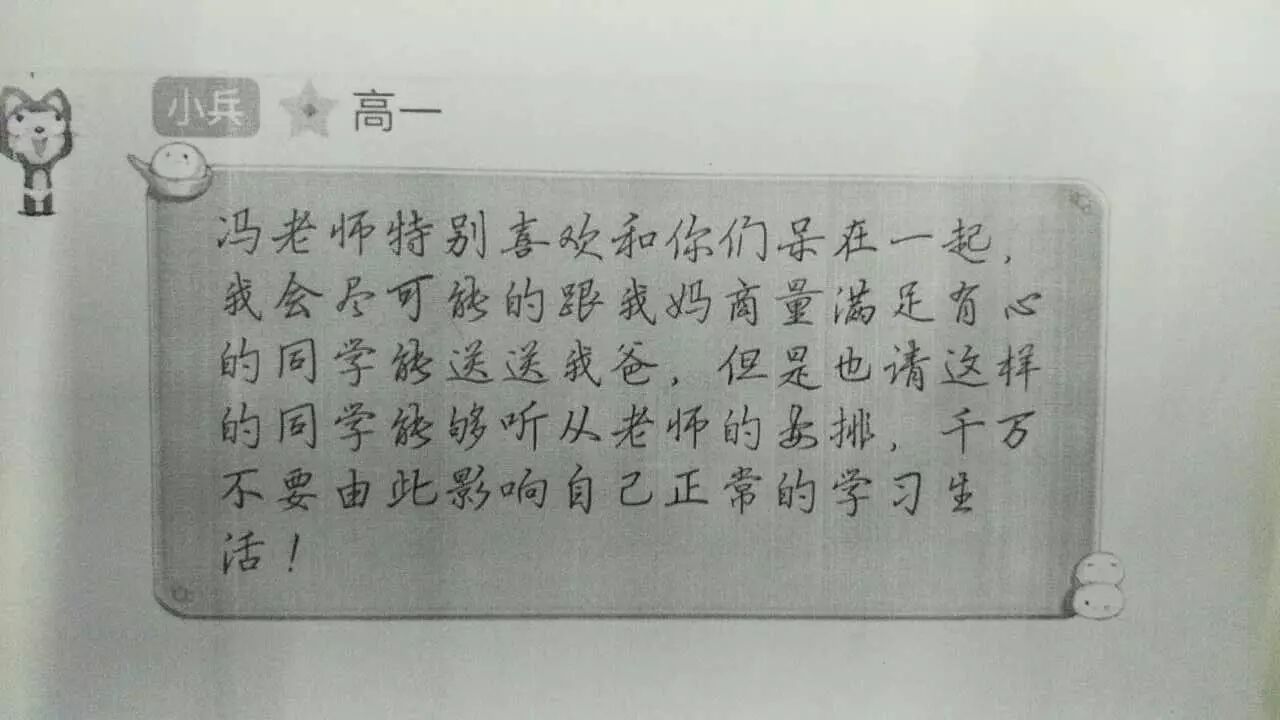 小兵 高一
冯老师特别喜欢和你们呆在一起，
我会尽可能的跟我妈商量满足有心
的同学能送送我爸，但是也请这样
的同学能够听从老师的安排，千万
不要由此影响自己正常的学习生
活！